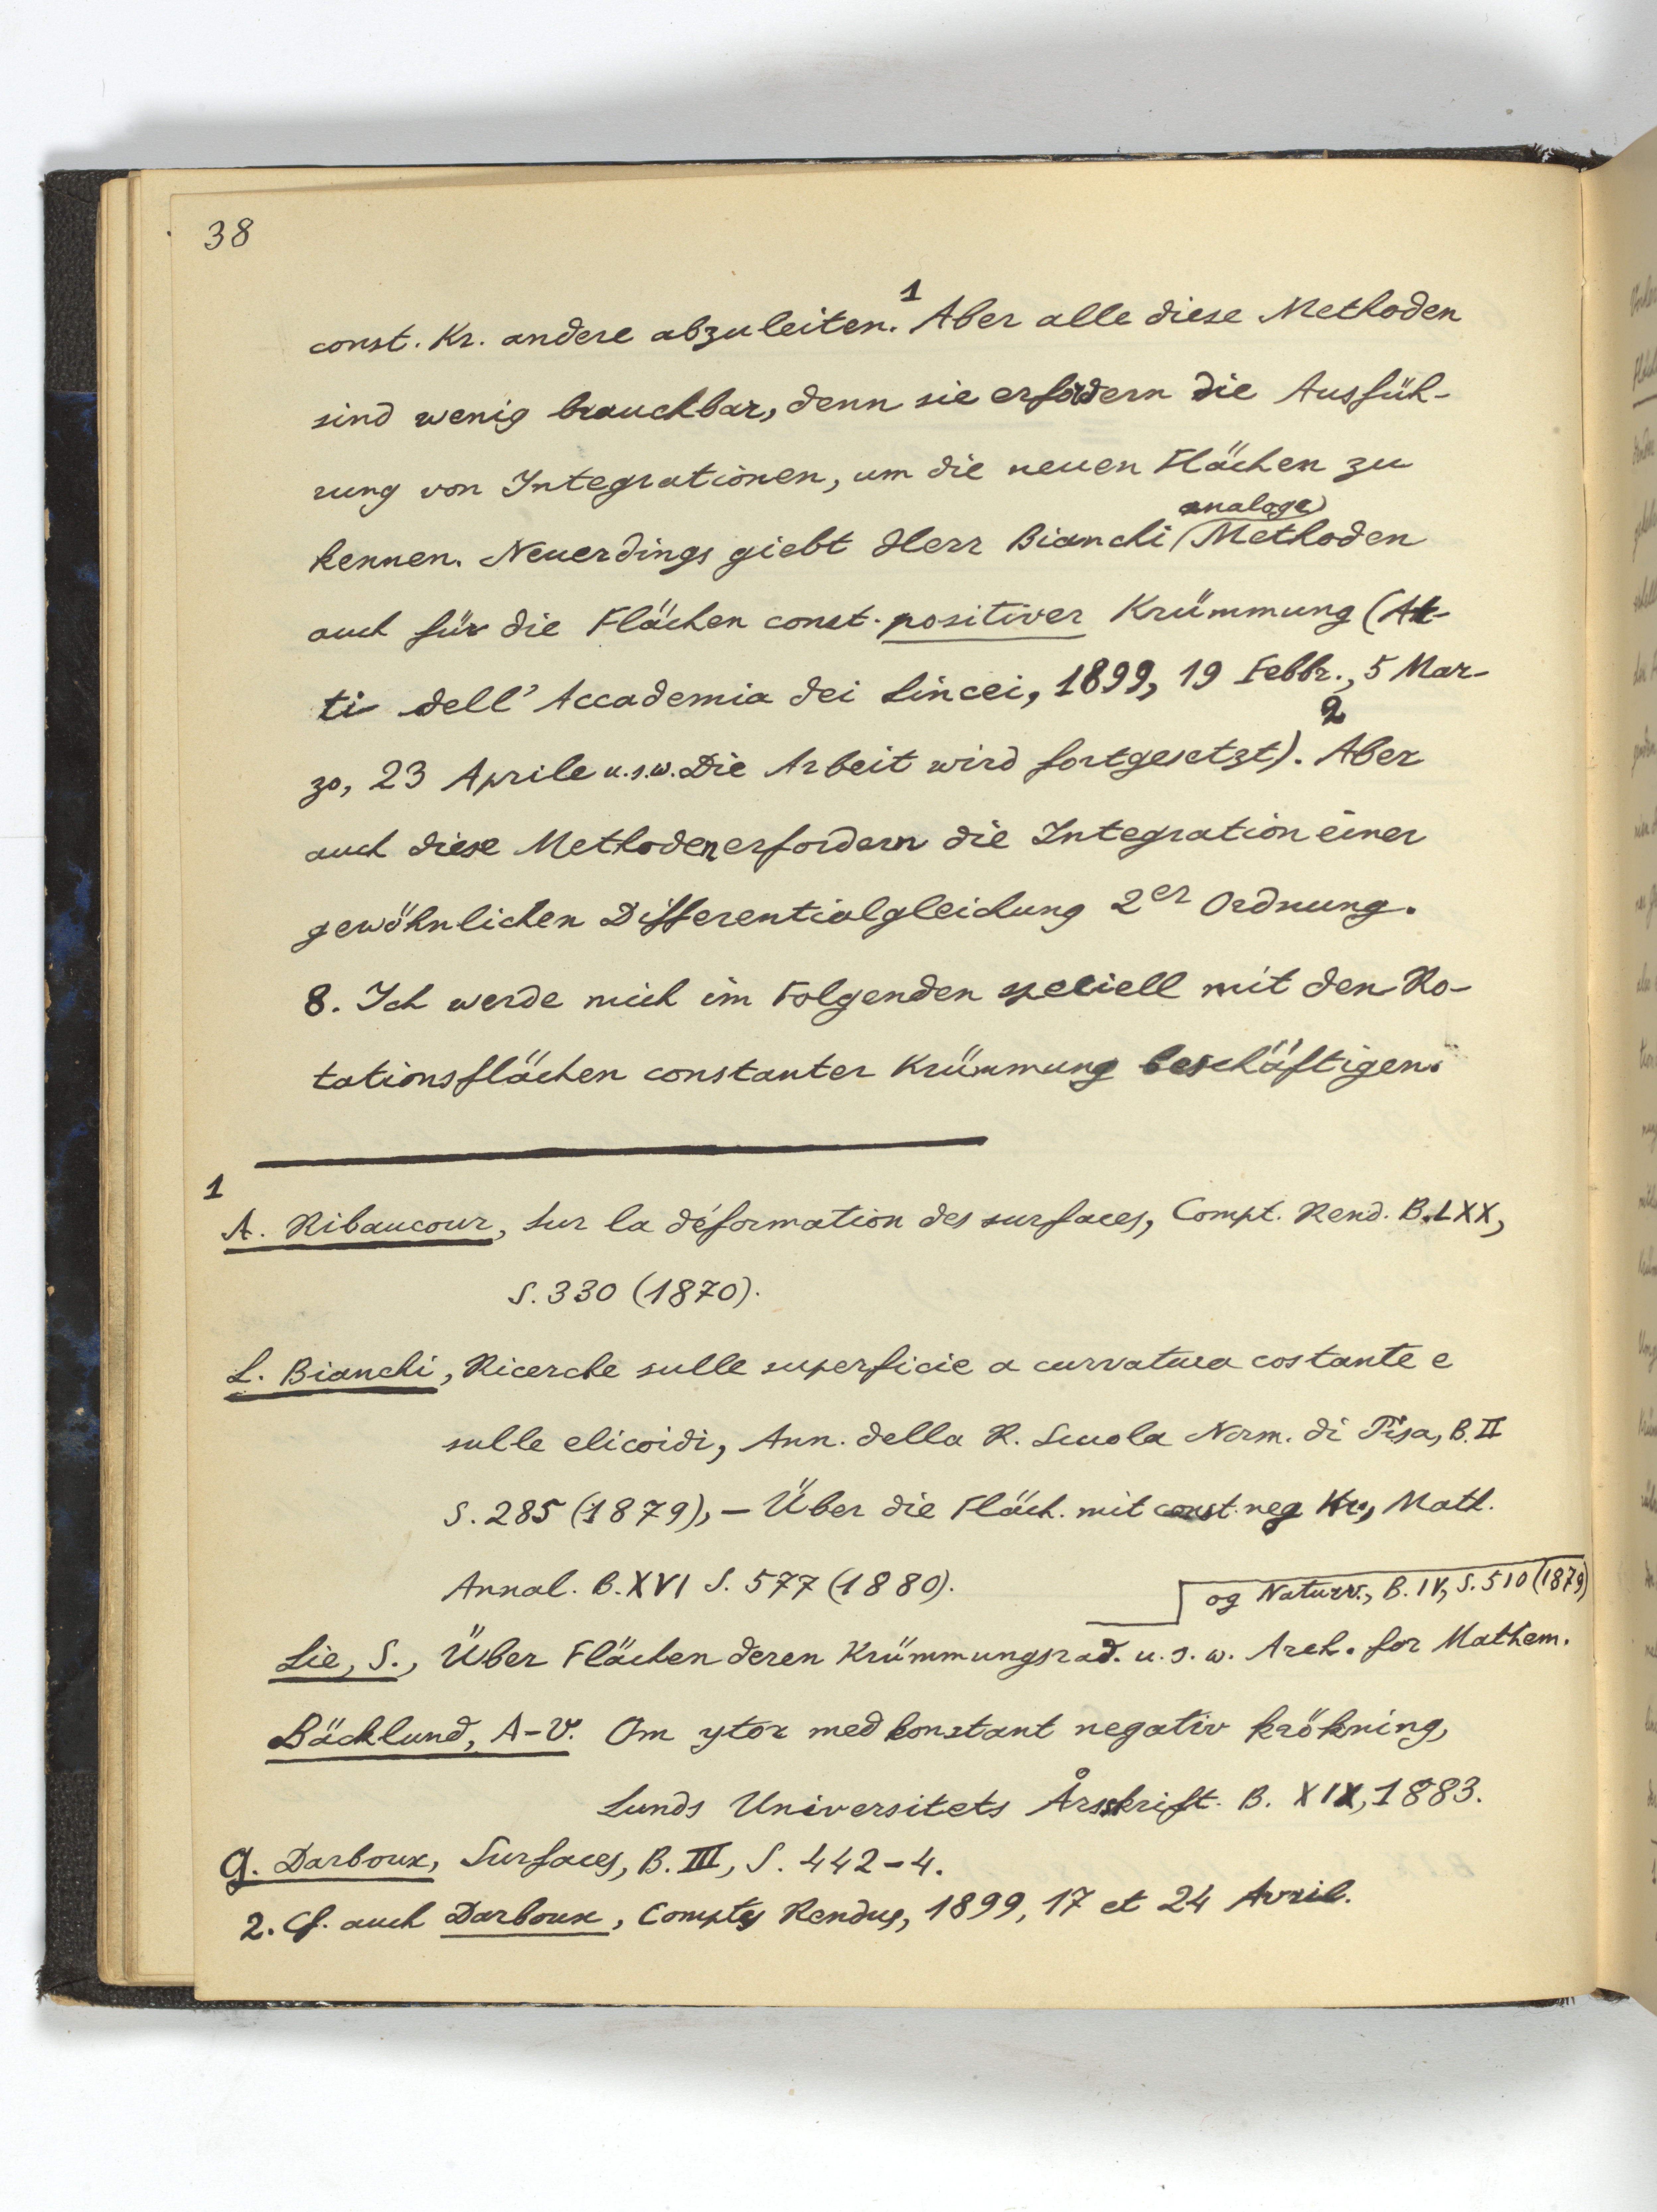 38
const. Kr. andere abzuleiten.¹ Aber alle diese Methoden
sind wenig brauchbar, denn sie erfordern die Ausfüh-
rung von Integrationen, um die neuen Flächen zu
analoge
kennen. Neuerdings giebt Herr Bianchi Methoden
auch für die Flächen const. positiver Krümmung (At-
ti dell' Accademia dei Lincei, 1899, 19 Febbr., 5 Mar-
zo, 23 Aprile u.s.w. Die Arbeit wird fortgesetzt).² Aber
auch diese Methoden erfordern die Integration einer
gewöhnlichen Differentialgleichung 2er Ordnung.
8. Ich werde mich im Folgenden speciell mit den Ro-
tationsflächen constanter Krümmung beschäftigen.
1
A. Ribaucour, Sur la déformation des surfaces, Compt. Rend. B. LXX,
S. 330 (1870).
L. Bianchi, Ricerche sulle superficie a curvatura costante e
sulle elicoidi, Ann. della R. Scuola Norm. di Pisa, B. II
S. 285 (1879), – Über die Fläch. mit const. neg Kr., Math.
Annal. B. XVI S. 577 (1880).
og Naturv., B. IV, S. 510 (1879)
Lie, S., Über Flächen deren Krümmungsrad. u. s. w. Arch. for Mathem.
Bäcklund, A-V. Om ytor med konstant negativ krökning,
Lunds Universitets Årsskrift. B. XIX, 1883.
G. Darboux, Surfaces, B. III, S. 442–4.
2. Cf. auch Darboux, Comptes Rendus, 1899, 17 et 24 Avril.